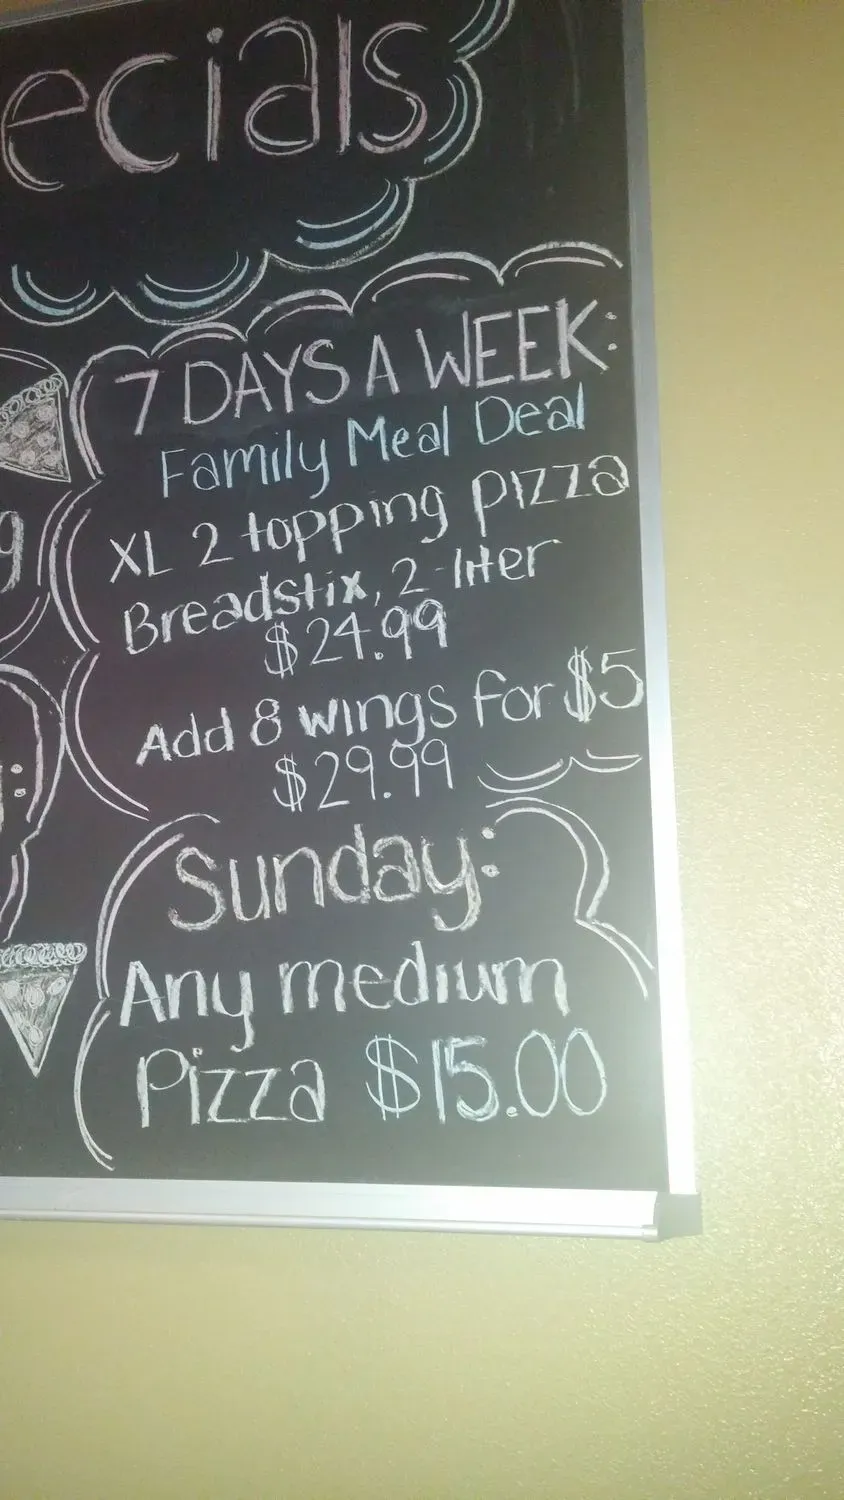 ecials
7 DAYS A WEEK:
Family Meal Deal
XL 2 topping pizza
Breadstix, 2-liter
$24.99
Add 8 wings for $5
$29.99
Sunday:
Any medium
Pizza $15.00
g
: